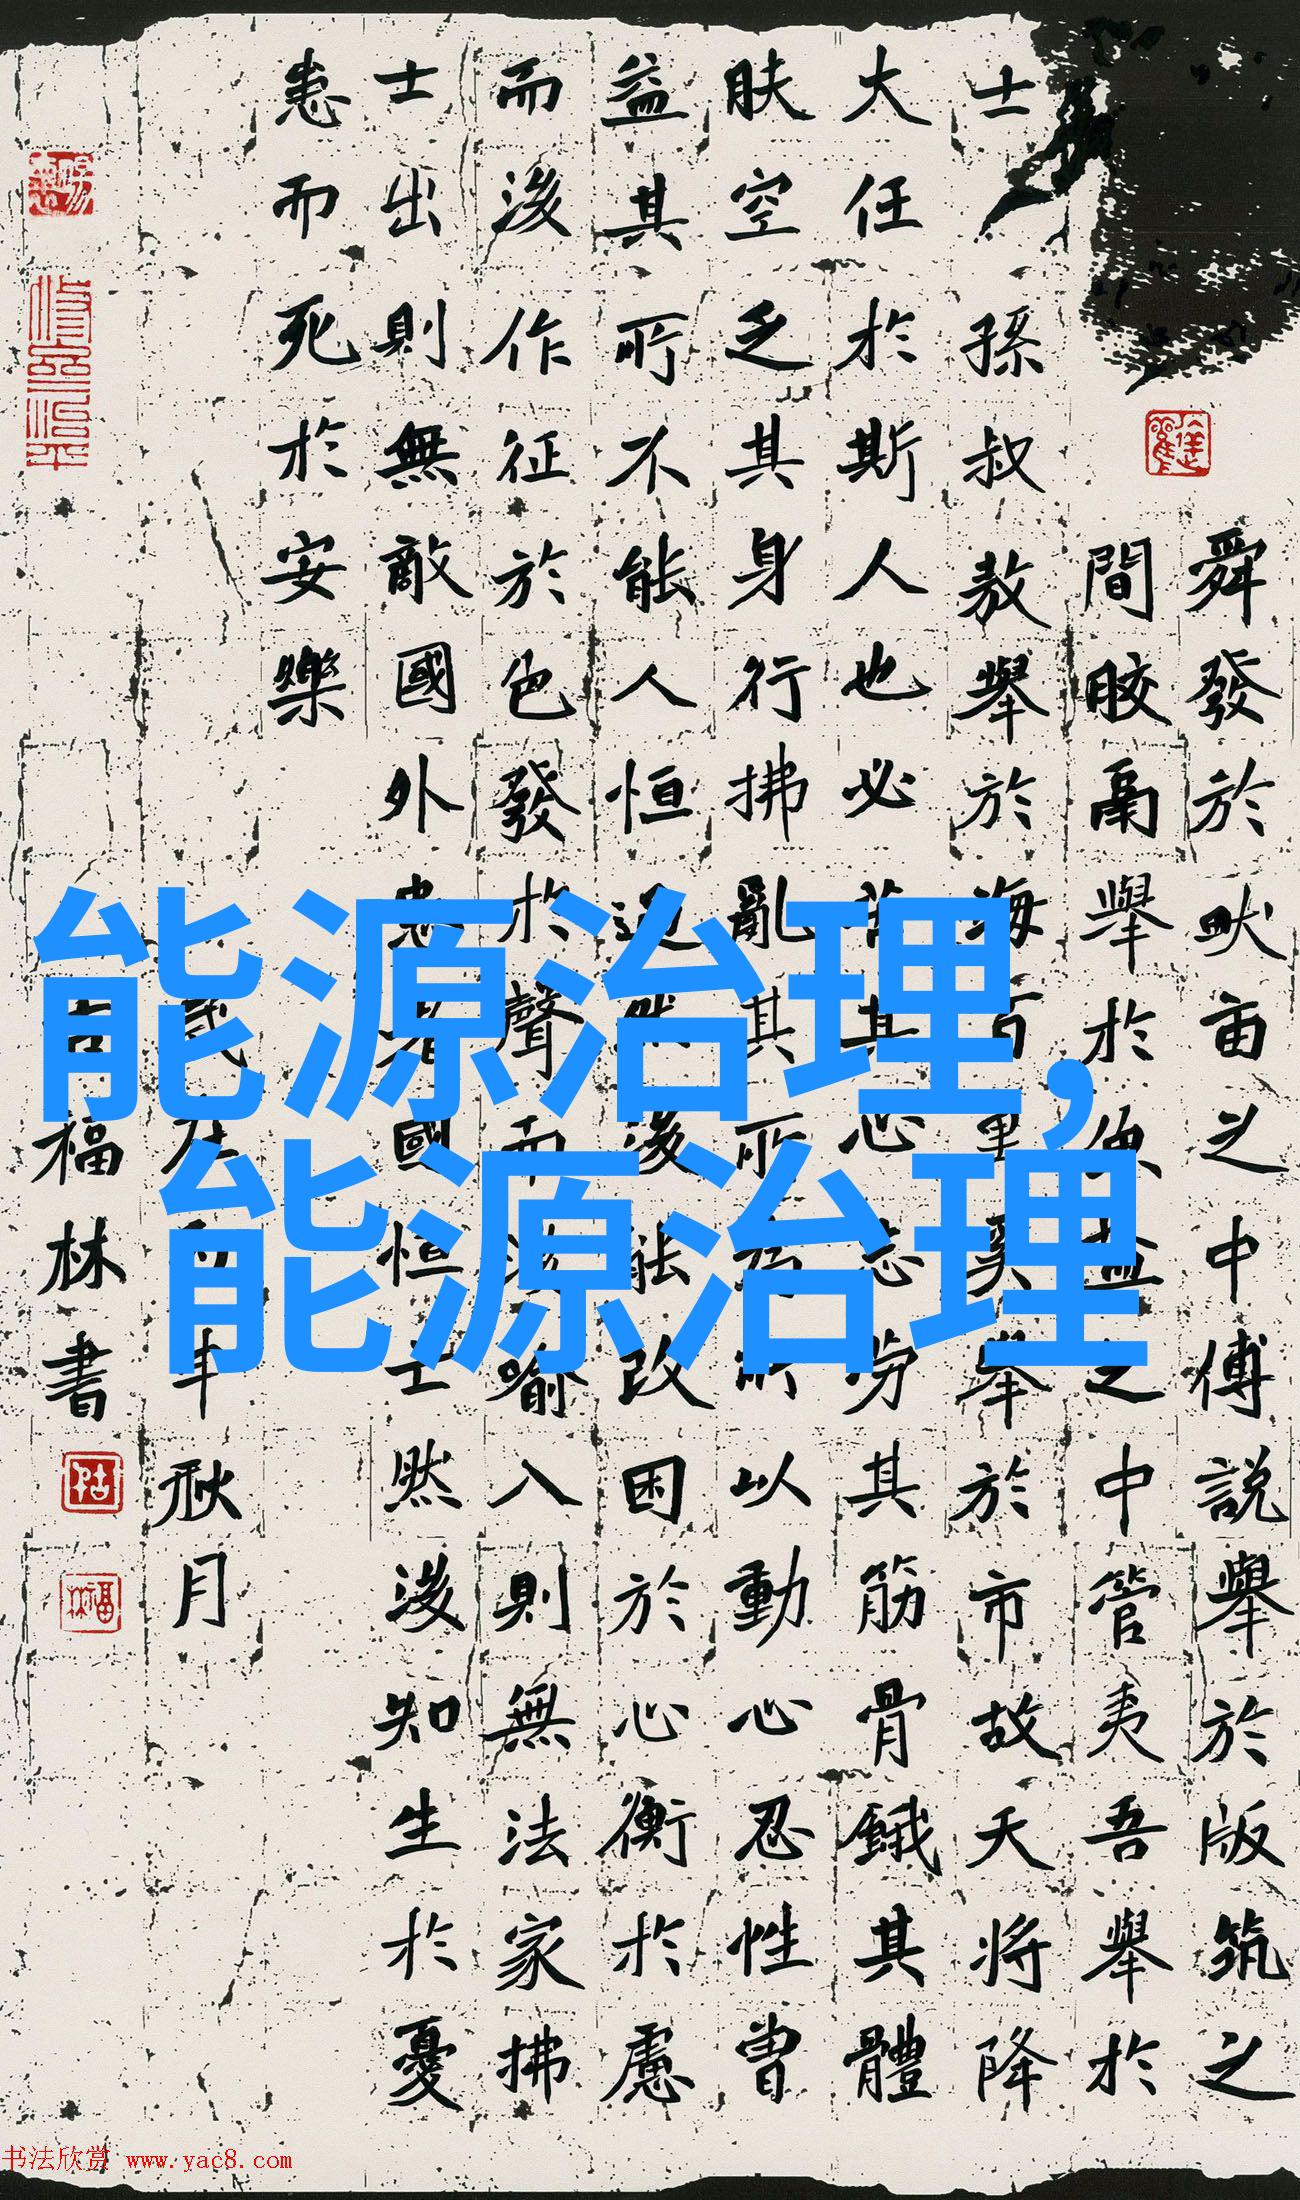 舜發於畎亩之中傅説舉於版筑之
間膠鬲舉於魚盐之中管夷吾舉於
士孫叔敖舉於海百里奚舉於市故天将降
大任於斯人也必苦其心志劳其筋骨餓其體
肤空乏其身行拂亂其所為所以動心忍性曽
益其所不能人恒过然後能改困於心衡於慮
而後作征於色發於聲而後喻入則無法家拂
士出則無敵國外患者國恒亡然後知生於憂
患而死於安樂
年秋月
古福林書
能源治理,
能源治理
书法欣赏 www.yac8.com